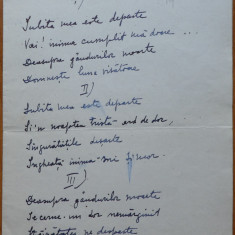 I)
Iubita mea este departe
Vai! inima cumplit mă doare ...
Deasupra gândurilor moarte
Domnește luna visătoare
II)
Iubita mea este departe
Și'n noaptea tristă - ard de dor,
Singurătățile deșarte
Îngheață inima-mi și mor.
III)
Deasupra gândurilor moarte
Se cerne-un dor nemărginit
ne desparte